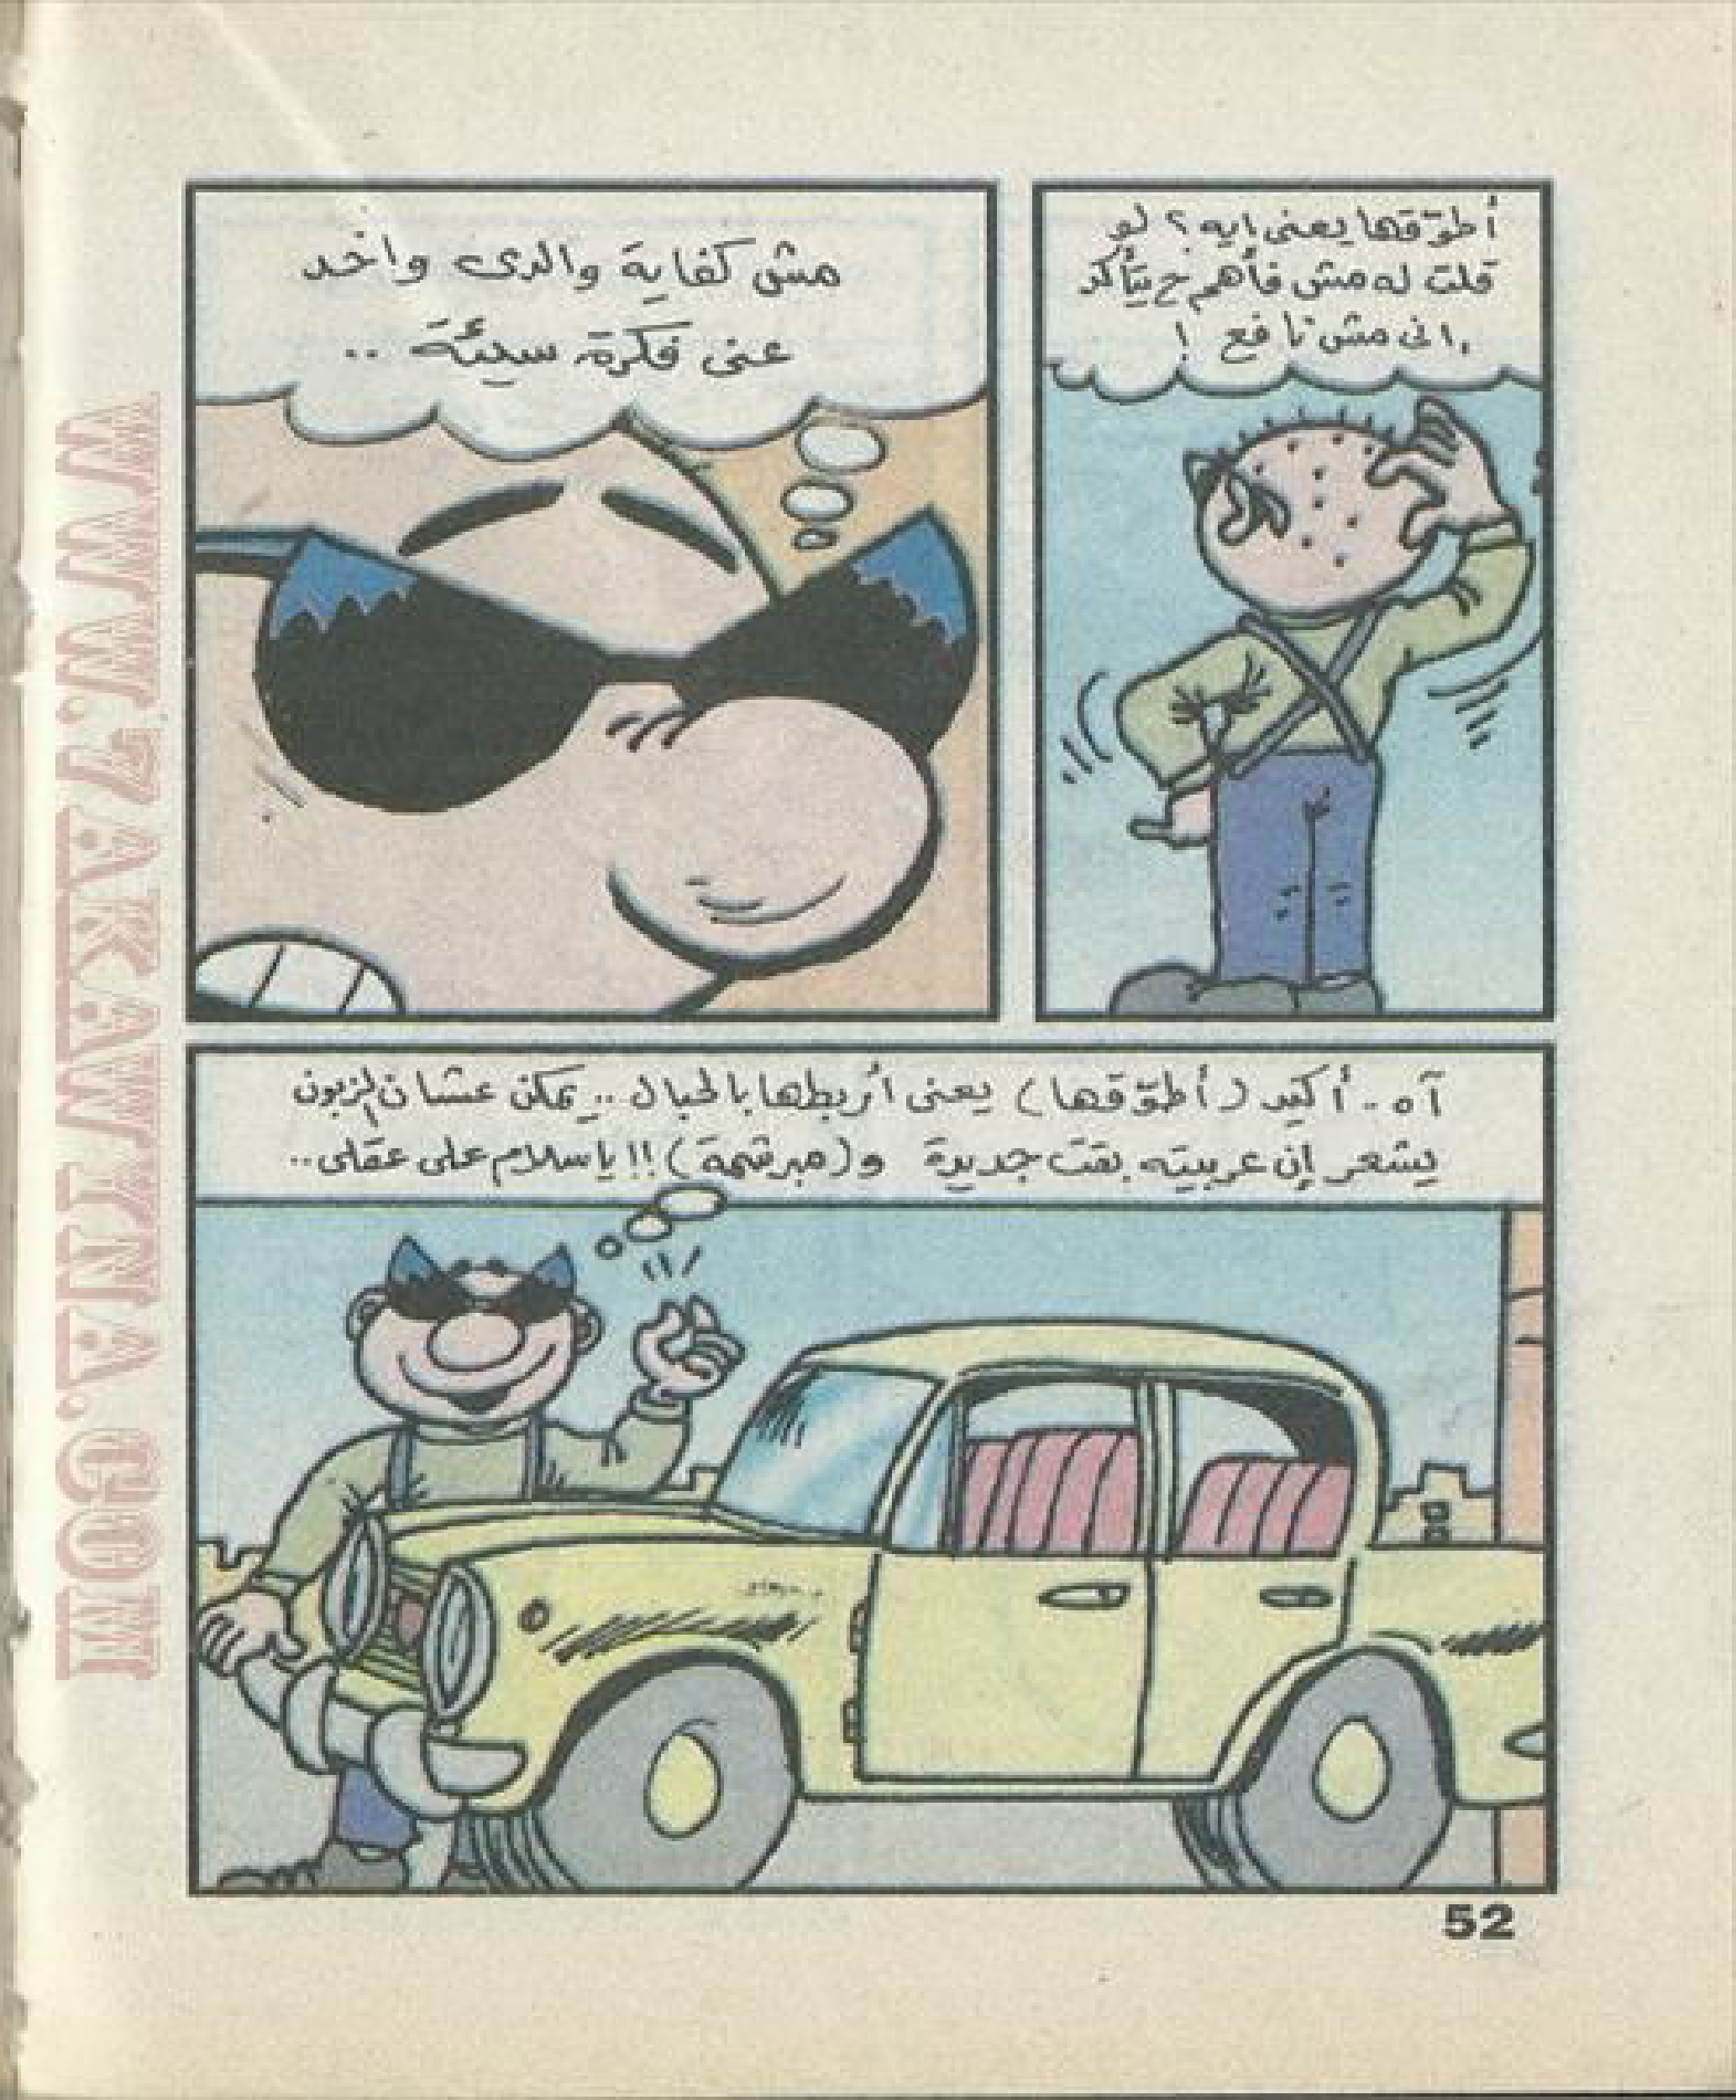 أطوّقها يعنى ايه؟ لو
قلت له مش فاهم ح يتأكد
انى مش نافع !
مش كفاية والدى واخد
عنى فكرة سيئة ..
آه .. أكيد (أطوّقها) يعنى أربطها بالحبال .. يمكن عشان الزبون
يشعر إن عربيته بقت جديدة و(مبرشمة) !! يا سلام على عقلى ..
52
WWW.ARABCOMICS